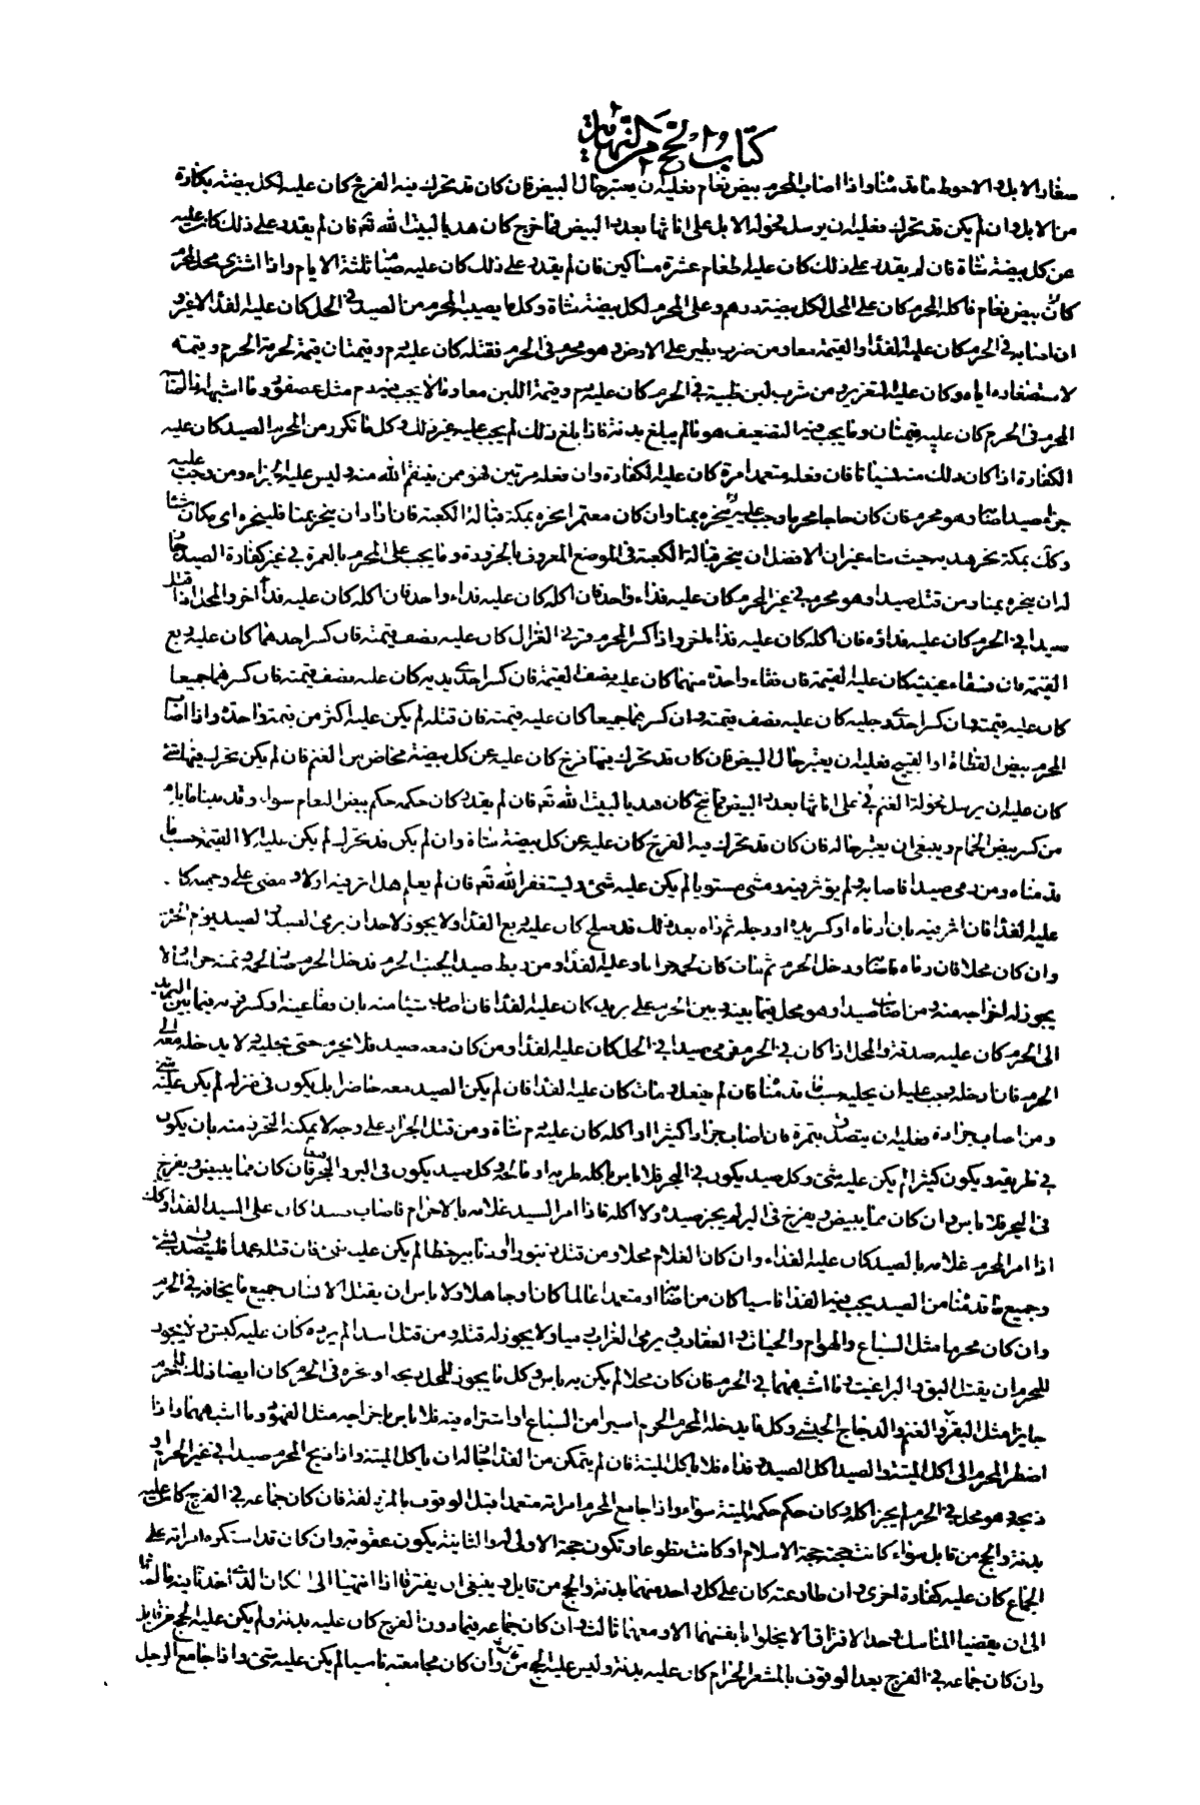 كتاب الحج من النهاية
صغار الابل والاحوط ما قدمناه واذا اصاب المحرم بيض نعام فعليه ان يعتبر حال البيض فان كان قد تحرك فيه الفرخ كان عليه لكل بيضة بكارة
من الابل وان لم يكن قد تحرك فعليه ان يرسل فحولة الابل على اناثها بعدد البيض فما خرج كان هديا لبيت الله تع فان لم يقدر على ذلك كان عليه
عن كل بيضة شاة فان لم يقدر على ذلك كان عليه اطعام عشرة مساكين فان لم يقدر على ذلك كان عليه صيام ثلثة الايام واذا اشترى محل لمحرم
بيض نعام فاكله المحرم كان على المحل لكل بيضة درهم وعلى المحرم لكل بيضة شاة وكل ما يصيبه المحرم من الصيد في الحل كان عليه الفداء لا غير و
ان اصابه في الحرم كان عليه الفداء والقيمة معا ومن ضرب بطير على الارض وهو محرم في الحرم فقتله كان عليه دم وقيمتان قيمة لحرمة الحرم وقيمة
لاستصغاره اياه وكان عليه التعزير ومن شرب لبن ظبية في الحرم كان عليه دم وقيمة اللبن معا وما لا يجب فيه دم مثل عصفور وما اشبهه اذا اصابه
المحرم في الحرم كان عليه قيمتان وما يجب فيه التضعيف هو ما لم يبلغ بدنة فاذا بلغ ذلك لم يجب عليه غير ذلك وكل ما تكرر من المحرم الصيد كان عليه
الكفارة اذا كان ذلك منه نسيانا فان فعله متعمدا مرة كان عليه الكفارة وان فعله مرتين فهو ممن ينتقم الله منه وليس عليه الجزاء ومن وجب عليه
جزاء صيد اصابه وهو محرم فان كان حاجا نحر ما وجب عليه بمنا وان كان معتمرا نحره بمكة قبالة الكعبة فان اراد ان ينحر بمنا فلينحر اي مكان شاء
وكذلك بمكة ينحر هديه حيث شاء غير ان الافضل ان ينحر قبالة الكعبة في الموضع المعروف بالحزورة وما يجب على المحرم بالعمرة في غير كفارة الصيد جاز
له ان ينحره بمنا ومن قتل صيدا وهو محرم في غير الحرم كان عليه فداء واحد فان اكله كان عليه فداء اخر والمحل اذا قتل
صيدا في الحرم كان عليه فداؤه فان اكله كان عليه فداء اخر واذا كسر المحرم قرني الغزال كان عليه نصف قيمته فان كسر احدهما كان عليه ربع
القيمة فان فقاء عينيه كان عليه القيمة فان فقاء واحدة منهما كان عليه نصف القيمة فان كسر احدى يديه كان عليه نصف قيمته فان كسرهما جميعا
كان عليه قيمته وان كسر احدى رجليه كان عليه نصف قيمته وان كسرهما جميعا كان عليه قيمته فان قتله لم يكن عليه اكثر من قيمة واحدة واذا اصاب
المحرم بيض القطاة او القبج فعليه ان يعتبر حال البيض فان كان قد تحرك فيها فرخ كان عليه عن كل بيضة مخاض من الغنم فان لم يكن تحرك فيها شئ
كان عليه ان يرسل فحولة الغنم في على اناثها بعدد البيض فما نتج كان هديا لبيت الله تع فان لم يقدر كان حكمه حكم بيض النعام سواء وقد بينا ما يلزم
من كسر بيض الحمام وينبغي ان يعتبر حاله فان كان قد تحرك فيه الفرخ كان عليه عن كل بيضة شاة وان لم يكن قد تحرك لم يكن عليه الا القيمة حسب ما
قدمناه ومن رمى صيدا فاصابه ولم يؤثر فيه ومشى مستويا لم يكن عليه شئ وليستغفر الله تع فان لم يعلم هل اثر فيه اولا ومضى على وجهه كان
عليه الفداء فان اثر فيه بان ادماه او كسر يده او رجله ثم راه بعد ذلك قد صلح كان عليه ربع الفداء ولا يجوز لاحد ان يرمى الصيد والصيد يؤم الحرم
وان كان محلا فان رماه فاصابه ودخل الحرم ثم مات كان لحمه حراما وعليه الفداء ومن ربط صيدا بجنب الحرم فدخل الحرم صار لحمه وثمنه حراما ولا
يجوز له اخراجه منه ومن اصاب صيدا وهو محل فيما بينه وبين الحرم على بريد كان عليه الفداء فان اصاب شيئا منه بان فقا عينه او كسر قرنه فيما بين البريد
الى الحرم كان عليه صدقة والمحل اذا كان في الحرم فرمى صيدا في الحل كان عليه الفداء ومن كان معه صيد فلا يحرم حتى يخليه ولا يدخله معه الى
الحرم فان ادخله وجب عليه ان يخليه حسب ما قدمناه فان لم يفعل ومات كان عليه الفداء فان لم يكن الصيد معه حاضرا بل يكون في منزله لم يكن عليه شئ
ومن اصاب جرادة فعليه ان يتصدق بتمرة فان اصاب جرادا كثيرا او اكله كان عليه دم شاة ومن قتل الجراد على وجه لا يمكنه التحرز منه بان يكون
في طريقه ويكون كثيرا لم يكن عليه شئ وكل صيد يكون في البحر فلا باس باكله طريه او مالحه وكل صيد يكون في البر والبحر معا فان كان مما يبيض ويفرخ
في البحر فلا باس وان كان مما يبيض ويفرخ في البر لم يجز صيده ولا اكله فاذا امر السيد غلامه بالاحرام فاصاب صيدا كان على السيد الفداء وكذلك
اذا امر المحرم غلامه بالصيد كان عليه الفداء وان كان الغلام محلا ومن قتل زنبورا او زنابير خطا لم يكن عليه شئ فان قتله عمدا فليتصدق بشئ
وجميع ما قدمناه من الصيد يجب فيه الفداء ناسيا كان من اصابه او متعمدا عالما كان او جاهلا ولا باس ان يقتل الانسان جميع ما يخافه في الحرم
وان كان محرما مثل السباع والهوام والحيات والعقارب ويرمى الغراب رميا ولا يجوز له قتله ومن قتل اسدا لم يرده كان عليه كبش ولا يجوز
للمحرم ان يقتل البق والبراغيث وما اشبههما في الحرم فان كان محلا لم يكن به باس وكل ما يجوز للمحل ذبحه او نحره في الحرم كان ايضا ذلك للمحرم
جايزا مثل البقر والغنم والدجاج الحبشي وكل ما يدخله المحرم الحرم اسيرا من السباع او اشتراه فيه فلا باس باخراجه مثل الفهود وما اشبههما واذا
اضطر المحرم الى اكل الميتة والصيد اكل الصيد وفداه فلا ياكل الميتة فان لم يتمكن من الفداء جاز له ان ياكل الميتة واذا ذبح المحرم صيدا في غير الحرم او
ذبحه وهو محل في الحرم لم يجز اكله وكان حكمه حكم الميتة سواء واذا جامع المحرم امراته متعمدا قبل الوقوف بالمزدلفة فان كان جماعه في الفرج كان عليه
بدنة والحج من قابل سواء كانت حجته حجة الاسلام او كانت تطوعا وتكون حجة الاولى له والثانية يكون عقوبة وان كان قد استكره امراته على
الجماع كان عليه كفارة اخرى وان طاوعته كان على كل واحد منهما بدنة والحج من قابل وينبغي ان يفترقا اذا انتهيا الى المكان الذى احدثا فيه ما احدثا
الى ان يقضيا المناسك وحد الافتراق الا يخلوا بانفسهما الا ومعهما ثالث وان كان جماعه فيما دون الفرج كان عليه بدنة ولم يكن عليه الحج من قابل
وان كان جماعه في الفرج بعد الوقوف بالمشعر الحرام كان عليه بدنة وليس عليه الحج من قابل وان كان مجامعته ناسيا لم يكن عليه شئ واذا جامع الرجل